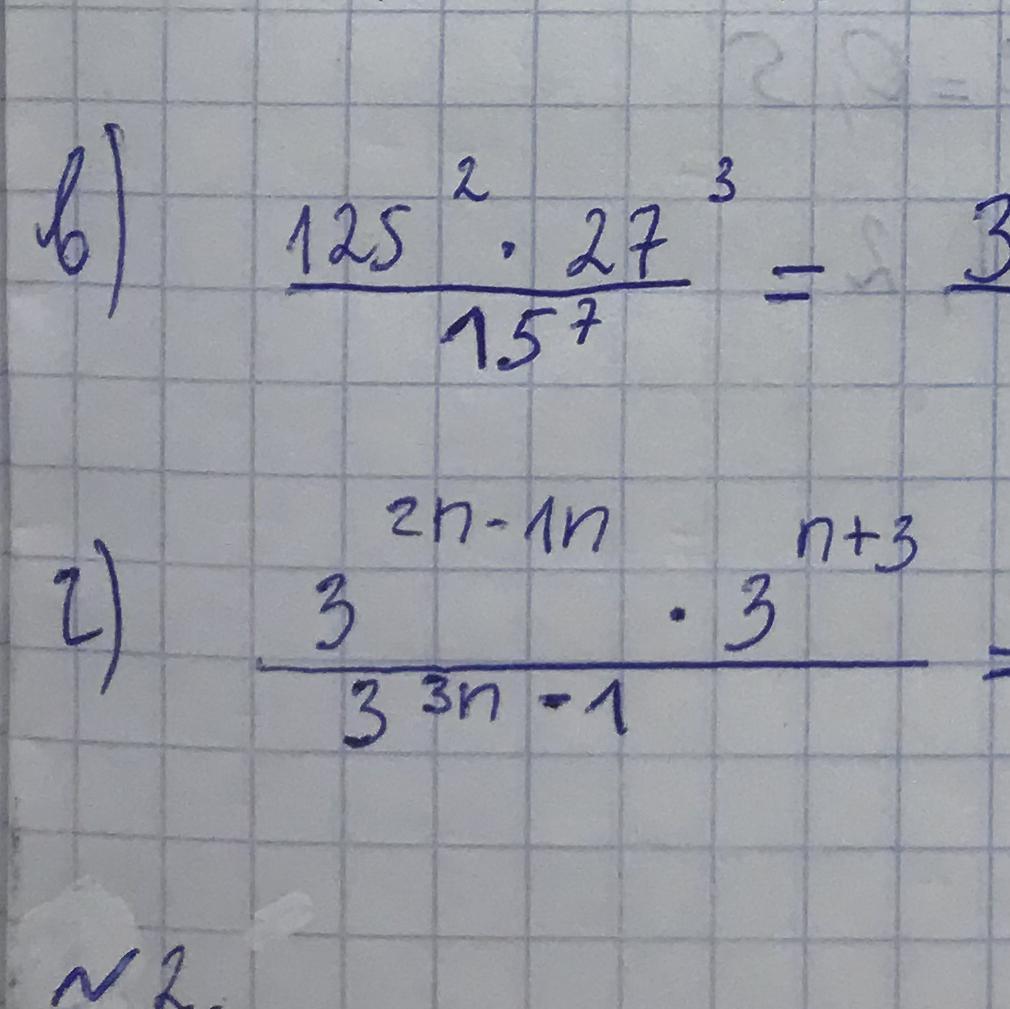 в) 125² · 27³ / 15⁷ = 3
г) 3²ⁿ⁻¹ⁿ · 3ⁿ⁺³ / 3³ⁿ⁻¹ =
№2.